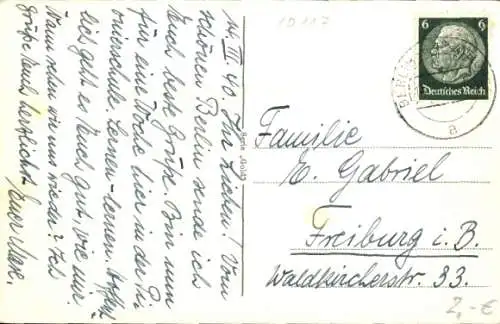 14. III. 40. Ihr Lieben! Vom
schönen Berlin sende ich
Euch beste Grüße. Bin nun
für eine Woche hier in der
Lernen - lernen. Hoffentl.
lich geht es Euch gut, wie mir.
Wann sehen wir uns wieder? Ich
grüße Euch herzlichst, Euer
19117
6 6
Deutsches Reich
BERLIN
a
Familie
E. Gabriel
Freiburg i. B.
Waldkircherstr. 33.
2,- €